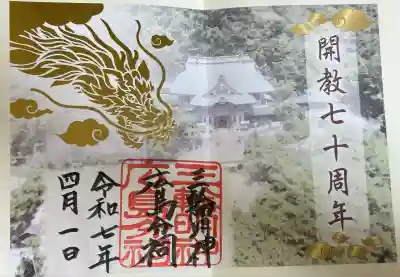 開教七十周年
三輪明神
広島分祠
令和七年
四月一日